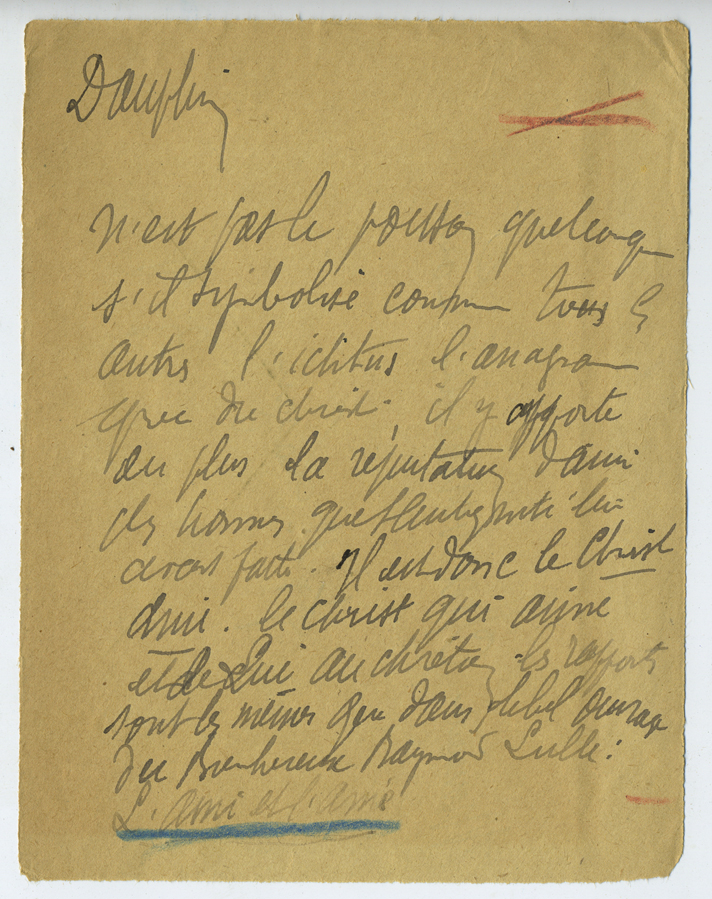 Dauphin
n'est pas le poisson quelconque
s'il symbolise comme tous les
autres l'ichtus l'anagram
grec du christ, il y apporte
en plus la réputation d'ami
des hommes que l'antiquité lui
avait faite. Il est donc le Christ
ami. le christ qui aime
et de Lui au chrétien les rapports
sont les mêmes que dans le bel ouvrage
du Bienheureux Raymond Lulle :
L'ami et l'aimé